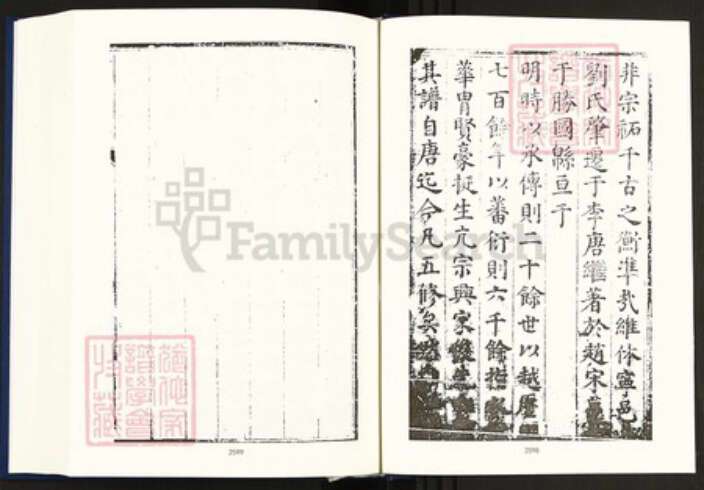 非宗祏千古之衡準哉維休寧邑
劉氏肇遷于李唐繼著於趙宋蔓
于勝國緜亘于
明時以永傳則二十餘世以越歷
七百餘年以蕃衍則六千餘指
華胄賢豪挺生亢宗興家
其譜自唐迄今凡五修矣
2598
2599
FamilySearch
譜學會